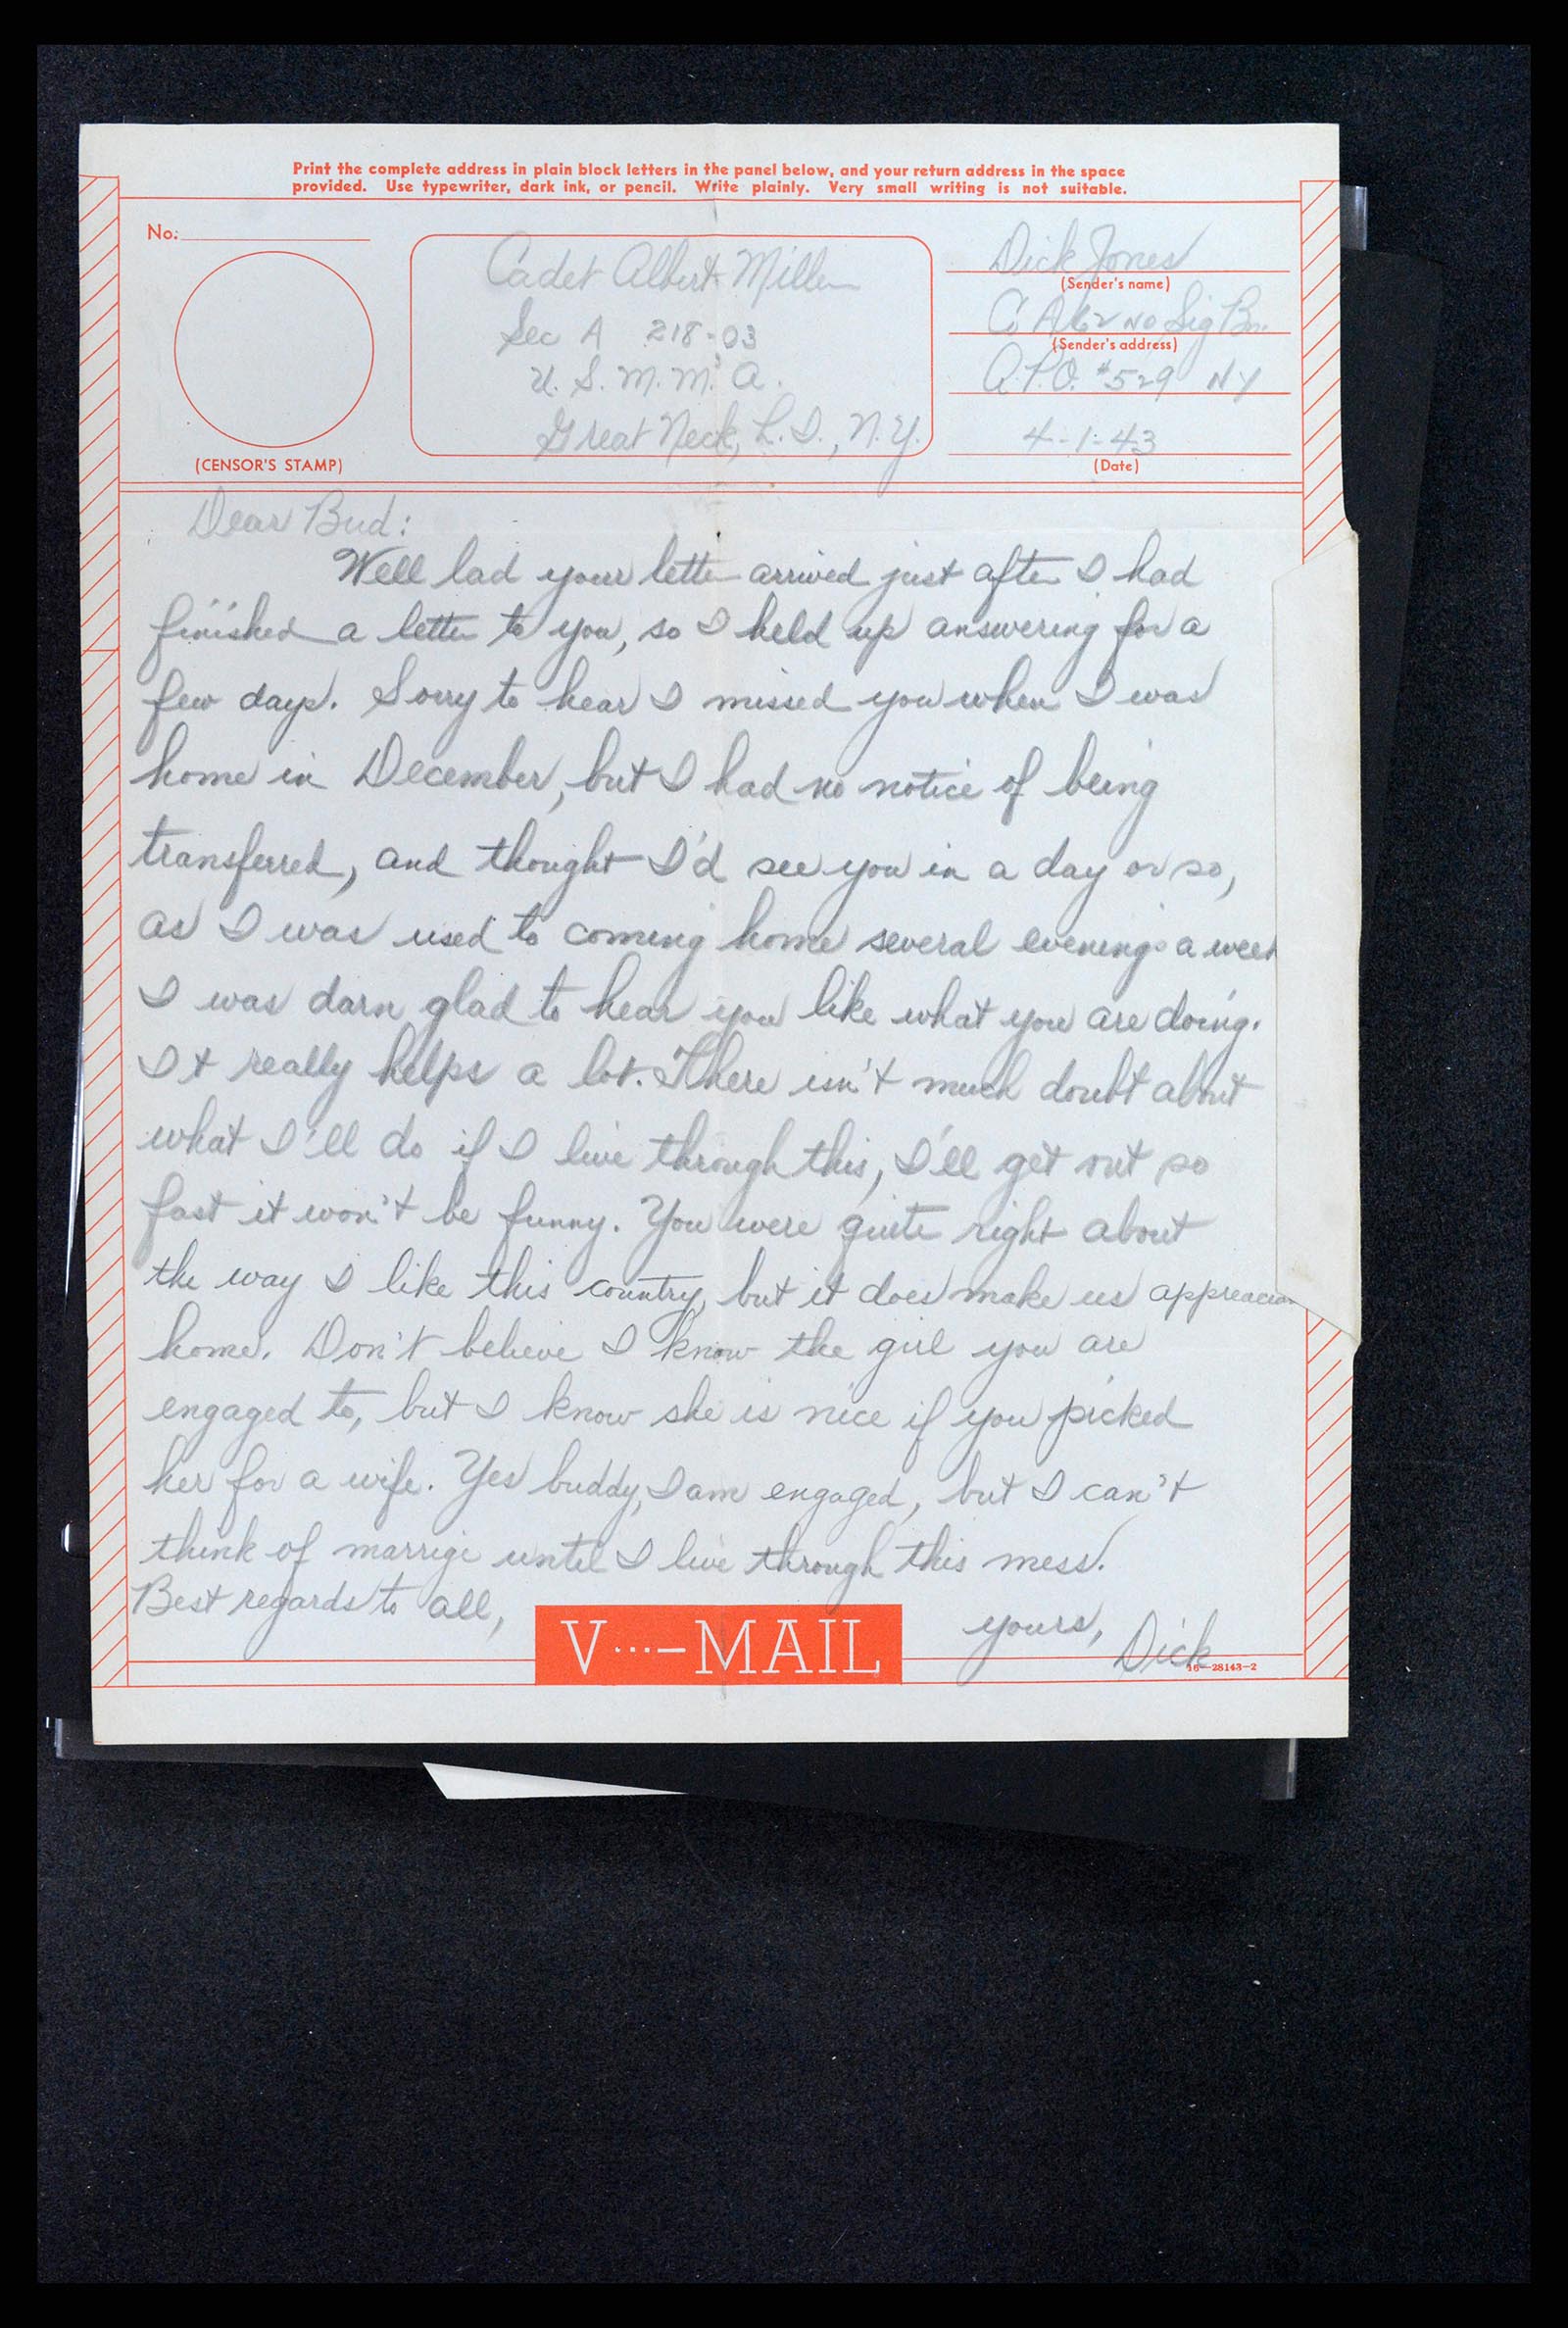 Print the complete address in plain block letters in the panel below, and your return address in the space
provided. Use typewriter, dark ink, or pencil. Write plainly. Very small writing is not suitable.
No.
(CENSOR'S STAMP)
Cadet Albert Miller
Sec A 218-03
U. S. M. M. A.
Great Neck, L. I., N. Y.
Dick Jones
(Sender's name)
Co A 62 nd Sig Bn.
(Sender's address)
A.P.O. #529 NY
4-1-43
(Date)
Dear Bud:
Well lad your letter arrived just after I had
finished a letter to you, so I held up answering for a
few days. Sorry to hear I missed you when I was
home in December, but I had no notice of being
transferred, and thought I'd see you in a day or so,
as I was used to coming home several evenings a week
I was darn glad to hear you like what you are doing.
It really helps a lot. There isn't much doubt about
what I'll do if I live through this, I'll get out so
fast it won't be funny. You were quite right about
the way I like this country, but it does make us
home. Don't believe I know the girl you are
engaged to, but I know she is nice if you picked
her for a wife. Yes buddy, I am engaged, but I can't
think of marrige until I live through this mess.
Best regards to all,
yours, Dick
V···—MAIL
16—28143-2